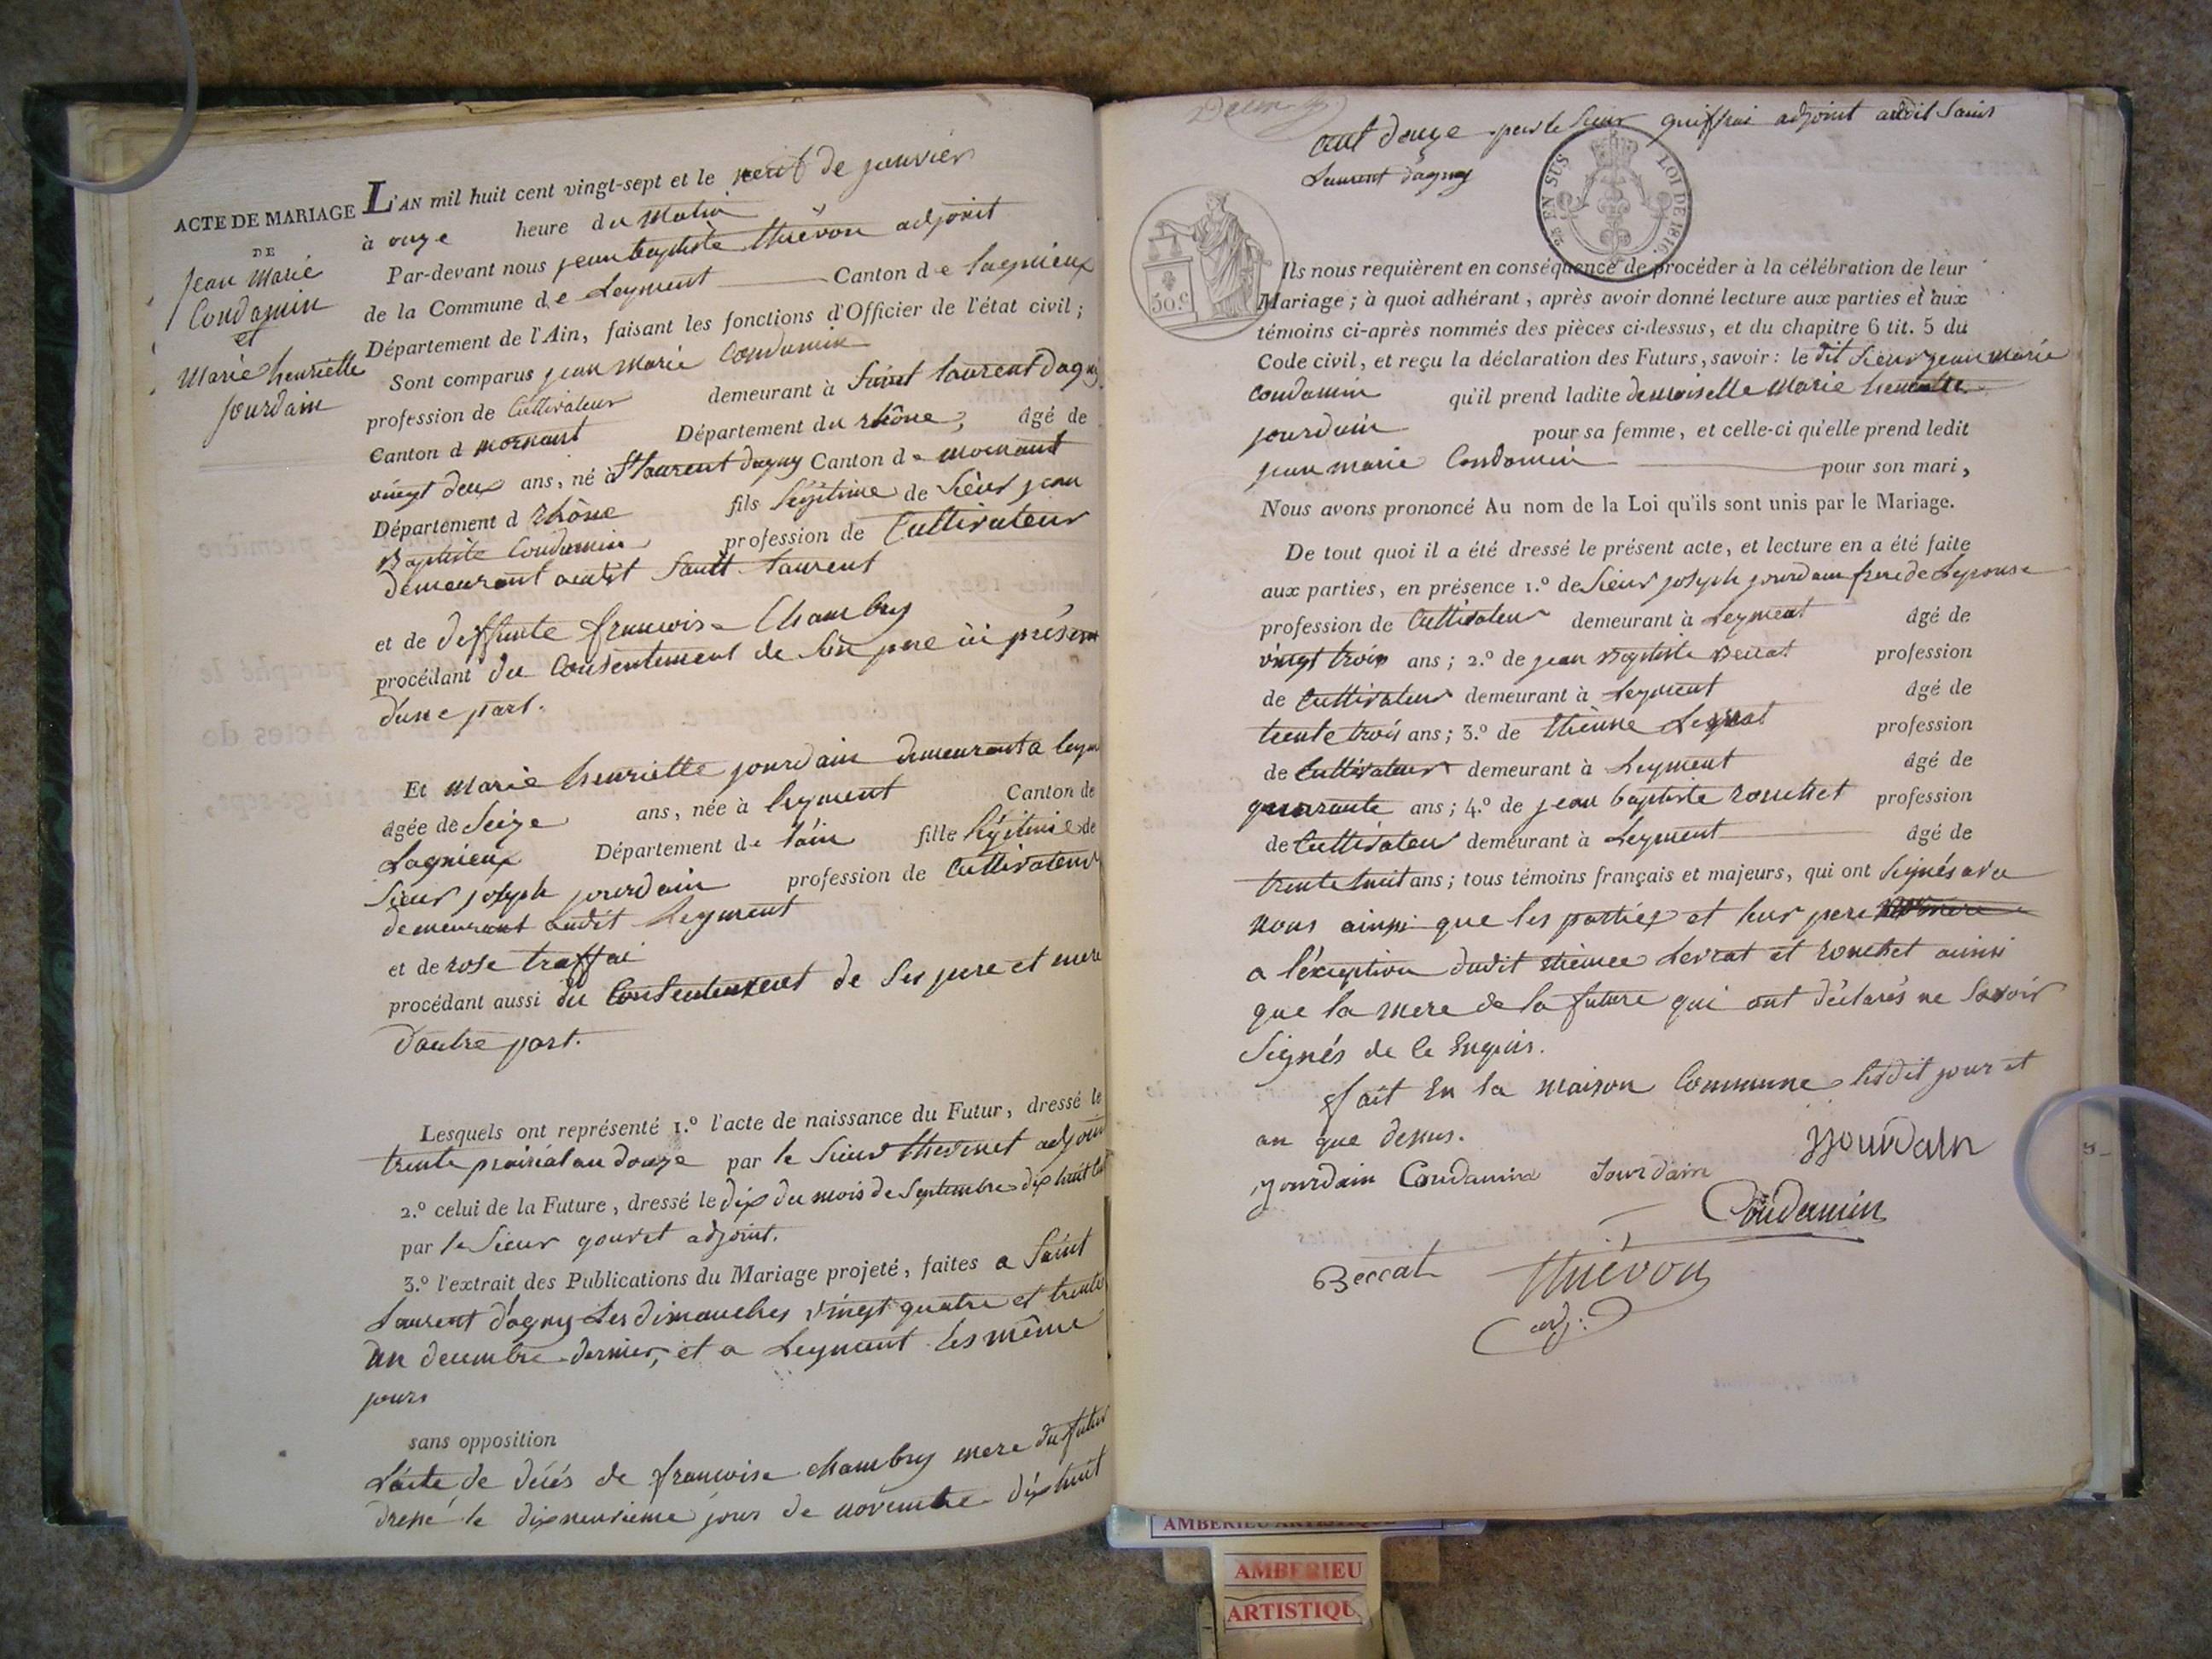 ACTE DE MARIAGE
DE
Jean Marie
Condamin
et
Marie henriette
jourdain
L'AN mil huit cent vingt-sept et le neuf de janvier
à onze heure du Matin
Par-devant nous jean baptiste thiévon adjoint
de la Commune de Leyment Canton de Lagnieux
Département de l'Ain, faisant les fonctions d'Officier de l'état civil;
Sont comparus jean marie Condamin
profession de Cultivateur demeurant à Saint laurent dagny
Canton d mornant Département du rhône, âgé de
vingt deux ans, né à St laurent dagny Canton de mornant
Département d rhône fils légitime de Sieur jean
Baptiste Condamin profession de Cultivateur
demeurant audit Saint laurent
et de deffunte francoise Chambry
procédant du Consentement de son pere ici présent
d'une part.
Et Marie henriette jourdain demeurant a leym
âgée de Seize ans, née à leyment Canton de
Lagnieux Département de l'ain fille légitime de
Sieur joseph jourdain profession de Cultivateur
demeurant audit Leyment
et de rose traffai
procédant aussi du Consentement de Ses pere et mere
d'autre part.
Lesquels ont représenté 1.º l'acte de naissance du Futur, dressé le
trente prairial an douze par le Sieur thevenet adjoint
2.º celui de la Future, dressé le dix du mois de Septembre dix huit cent
par le Sieur gouvet adjoint.
3.º l'extrait des Publications du Mariage projeté, faites a Saint
Laurent d'agny Les dimanches vingt quatre et trente
un decembre dernier, et a Leyment les même
jours
sans opposition
L'acte de décés de francoise chambry mere du futur
dressé le dix neuvieme jour de novembre dix huit
cent douze par le Sieur adjoint audit Saint
Laurent d'agny
EN SUS
LOI DE 1816.
50.c
Ils nous requièrent en conséquence de procéder à la célébration de leur
Mariage; à quoi adhérant, après avoir donné lecture aux parties et aux
témoins ci-après nommés des pièces ci-dessus, et du chapitre 6 tit. 5 du
Code civil, et reçu la déclaration des Futurs, savoir: le dit Sieur jean marie
Condamin qu'il prend ladite demoiselle Marie henriette
jourdain pour sa femme, et celle-ci qu'elle prend ledit
jean marie Condamin pour son mari,
Nous avons prononcé Au nom de la Loi qu'ils sont unis par le Mariage.
De tout quoi il a été dressé le présent acte, et lecture en a été faite
aux parties, en présence 1.º de Sieur joseph jourdain frere de Lepouse
profession de Cultivateur demeurant à Leyment âgé de
vingt trois ans; 2.º de jean Baptiste Beccat profession
de Cultivateur demeurant à Leyment âgé de
trente trois ans; 3.º de Etienne Levrat profession
de Cultivateur demeurant à Leyment âgé de
quarante ans; 4.º de jean baptiste rouchet profession
de Cultivateur demeurant à Leyment âgé de
trente huit ans; tous témoins français et majeurs, qui ont Signés avec
nous ainsi que les parties et leur pere
a l'exception dudit etienne Levrat et rouchet ainsi
que la mere de la future qui ont déclarés ne Savoir
Signés de ce Enquis.
fait En la maison Commune Lesdit jour et
an que dessus.
jjourdain
jourdain Condamin Jourdain
Condamin
Beccat thiévon
adj.
AMBERIEU ARTISTIQUE
AMBERIEU
ARTISTIQU